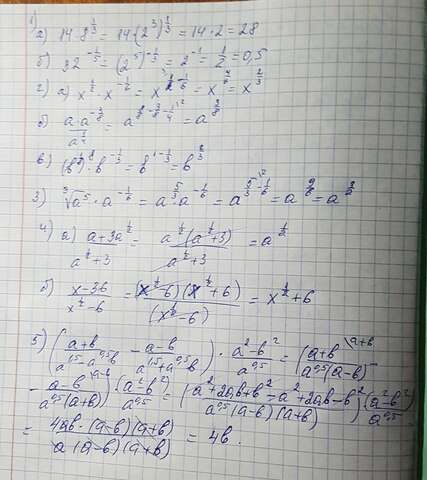 1)
a) 14·8^(1/3) = 14·(2^3)^(1/3) = 14·2 = 28
б) 32^(-1/5) = (2^5)^(-1/5) = 2^(-1) = 1/2 = 0,5
= x^(2/3)
б) = a^(3/8)
в) = b^(2/3)
3) ∛a^5 · a^(-1/6) = a^(5/3) · a^(-1/6) = a^(5/3-1/6) = a^(9/6) = a^(3/2)
4) a) (a+3a^(1/2))/(a^(1/2)+3) = a^(1/2)(a^(1/2)+3)/(a^(1/2)+3) = a^(1/2)
б) (x-36)/(x^(1/2)-6) = (x^(1/2)-6)(x^(1/2)+6)/(x^(1/2)-6) = x^(1/2)+6
5) ((a+b)/(a^1,5-a^0,5b) - (a-b)/(a^1,5+a^0,5b)) · (a^2-b^2)/a^0,5 = ((a+b)\a+b/(a^0,5(a-b)) -
- (a-b)\a-b/(a^0,5(a+b))) (a^2-b^2)/a^0,5 = (a^2+2ab+b^2-a^2+2ab-b^2)/(a^0,5(a-b)(a+b)) · (a^2-b^2)/a^0,5 =
= 4ab·(a-b)(a+b)/(a(a-b)(a+b)) = 4b.